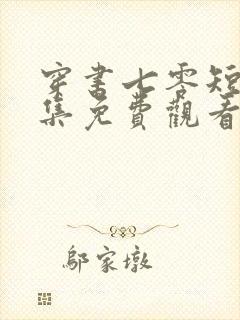 穿書七零短
集免費觀看
鄔家墩